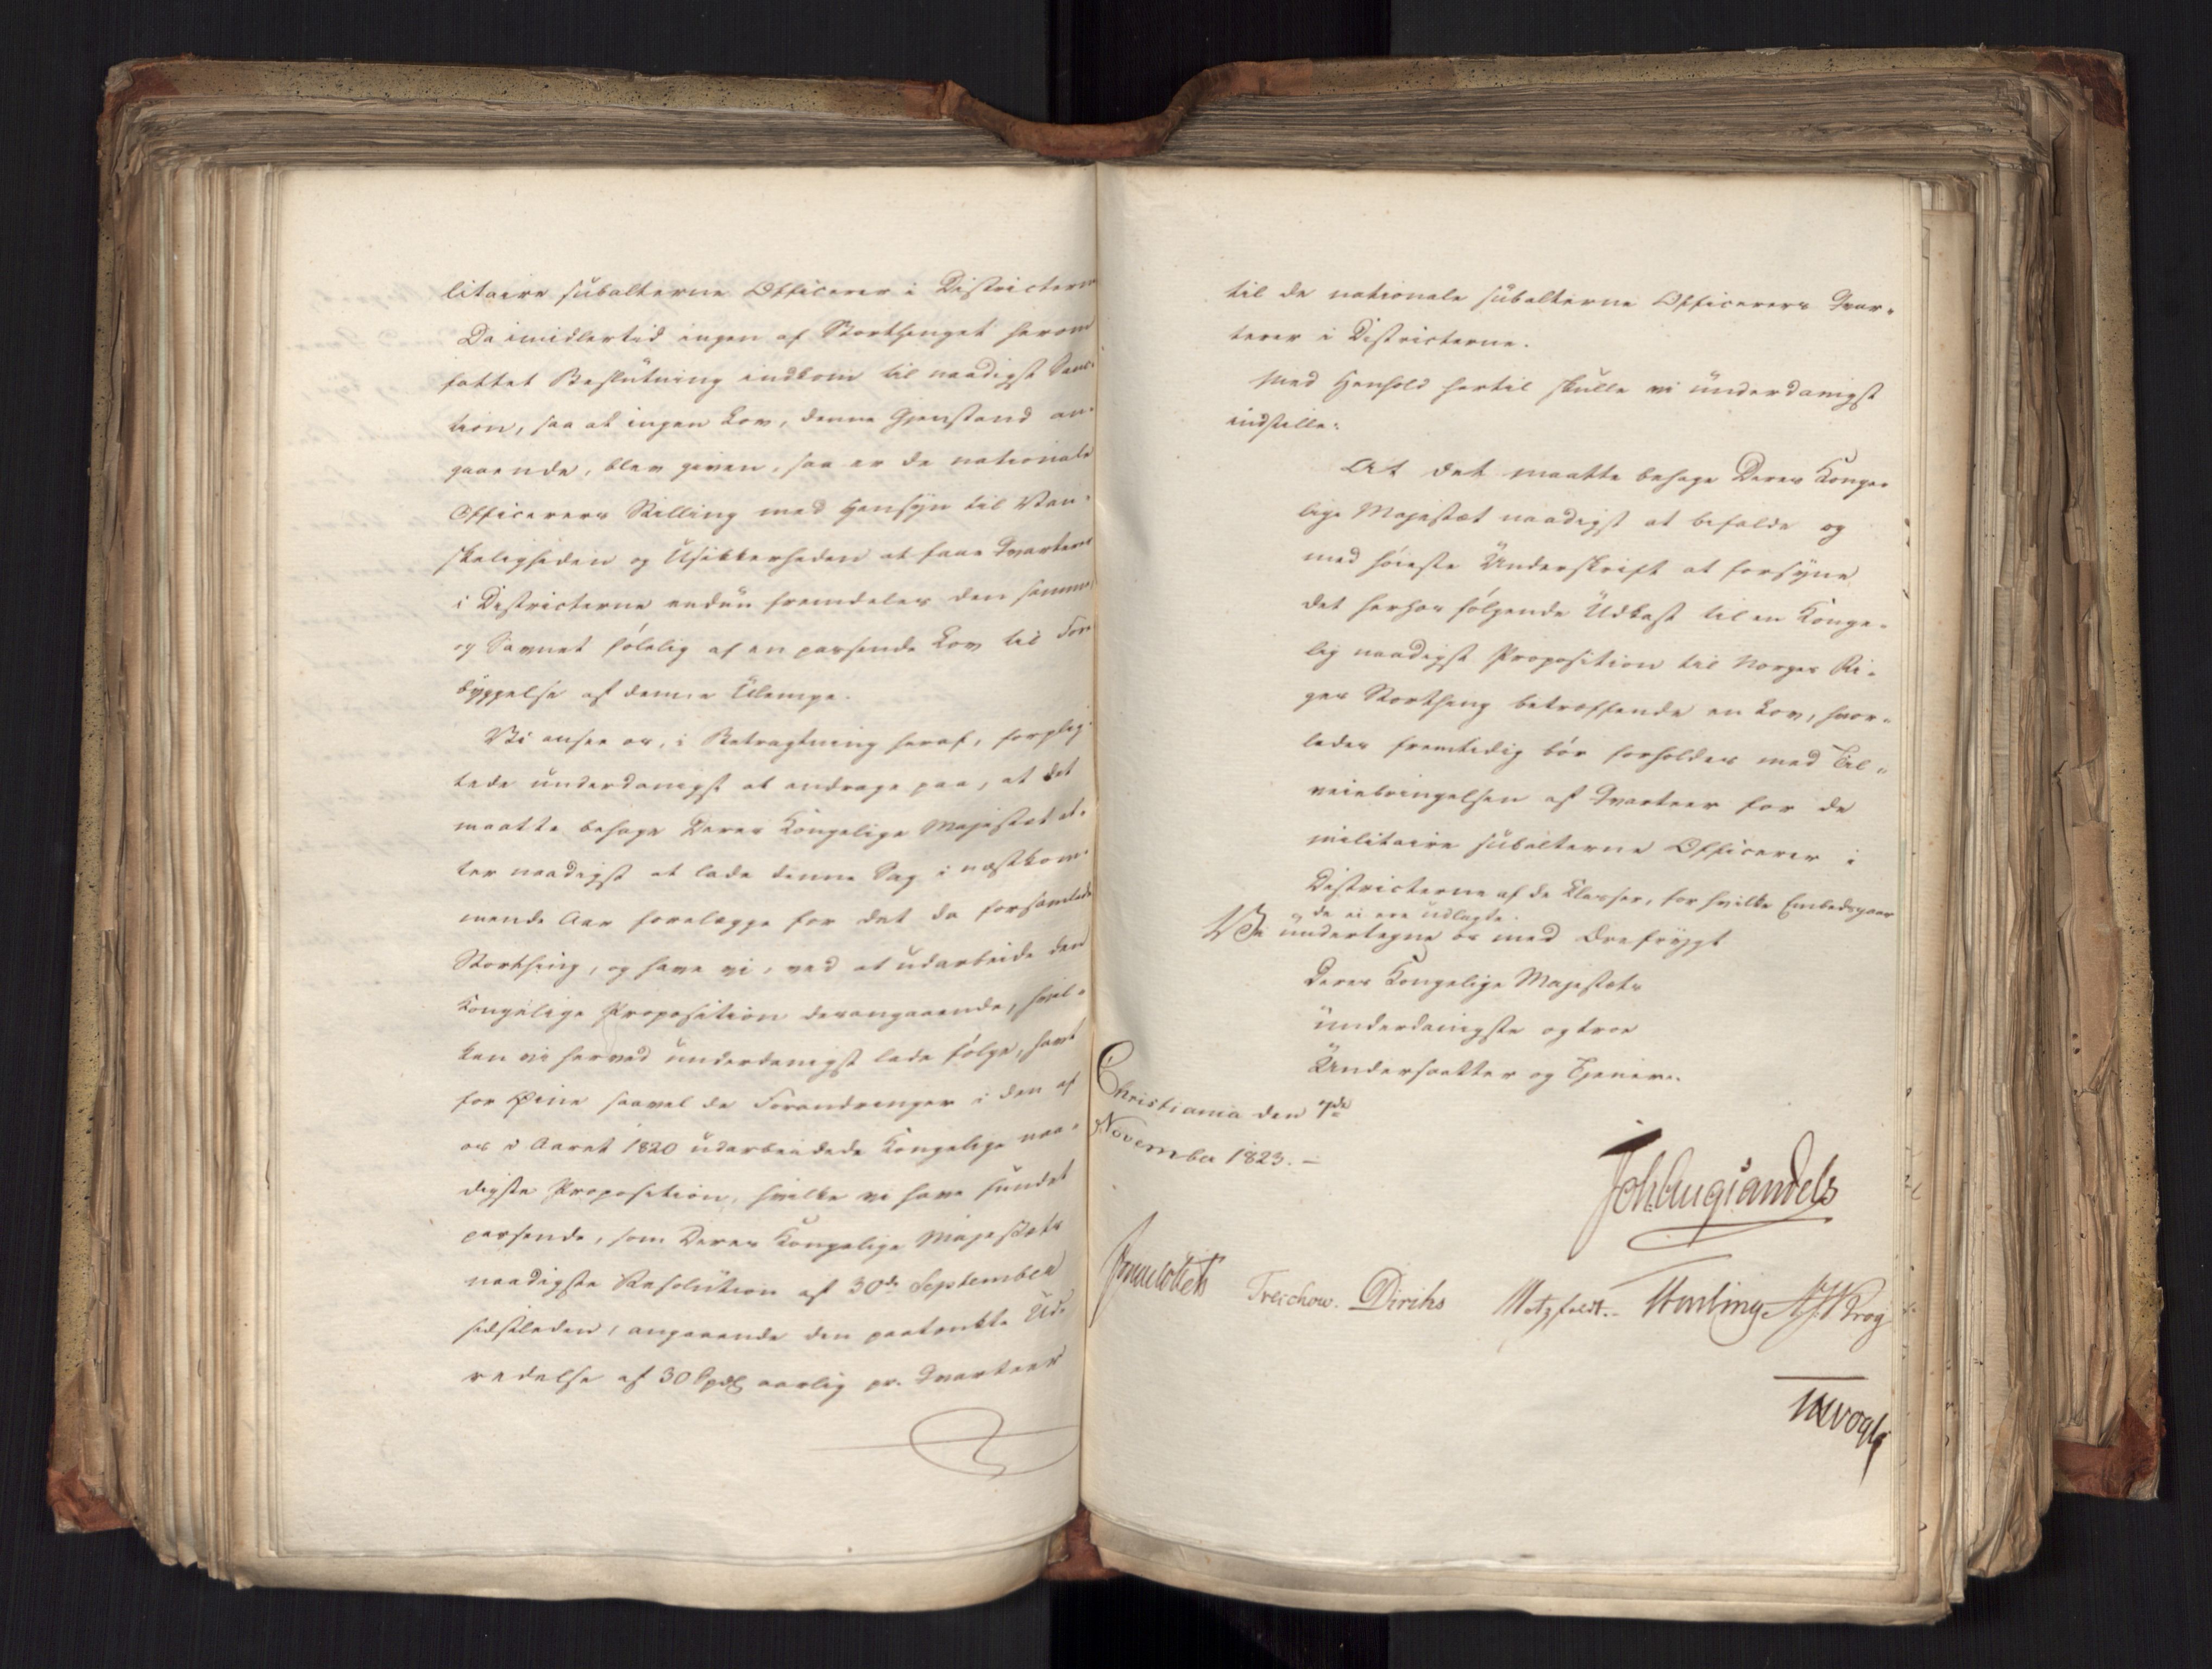 litaire subalterne Officerer i Districterne
Da imidlertid ingen af Storthinget herom
fattet Beslutning indkom til naadigst Sanc-
tion, saa at ingen Lov, denne Gjenstand an-
gaaende, blev given, saa er de nationale
Officerers Stilling med Hensyn til Van-
skeligheden og Usikkerheden at faae Qvarteer
i Districterne endnu fremdeles den samme,
og Savnet følelig af en passende Lov til Fore
byggelse af denne Ulempe.
Vi ansee os, i Betragtning heraf, forplig-
tede underdanigst at andrage paa, at det
maatte behage Deres Kongelige Majestæt at-
ter naadigst at lade denne Sag i næstkom-
mende Aar forelægge for det da forsamlede
Storthing, og have vi, ved at udarbeide den
Kongelige Proposition desangaaende, hvil-
ken vi herved underdanigst lade følge, havt
for Øine saavel de Forandringer i den af
os i Aaret 1820 udarbeidede Kongelige naa-
digste Proposition, hvilke vi have fundet
passende, som Deres Kongelige Majestæts
naadigste Resolution af 30de September
sidstleden, angaaende den paatænkte Ud-
redelse af 30 Spdlr aarlig pr. Qvarteer
til de nationale subalterne Officerers Qvar-
terer i Districterne.
Med Henhold hertil skulle vi underdanigst
indstille:
At det maatte behage Deres Konge-
lige Majestæt naadigst at befale og
med høieste Underskrift at forsyne
det herhos følgende Udkast til en Konge-
lig naadigst Proposition til Norges Ri-
ges Storthing betræffende en Lov, hvor-
ledes fremtidig bør forholdes med Til-
veiebringelsen af Qvarteer for de
militaire subalterne Officerer i
Districterne af de Classer, for hvilke Embedsgaar
de ei ere udlagte.
Vi undertegne os med Ærefrygt
Deres Kongelige Majestæts
underdanigste og troe
Undersaatter og Tjenere.
Christiania den 7de
November 1823. –
Joh: Aug: Sandels
Sommerhielm
Treschow. Diriks Motzfeldt. Krog
Vogt